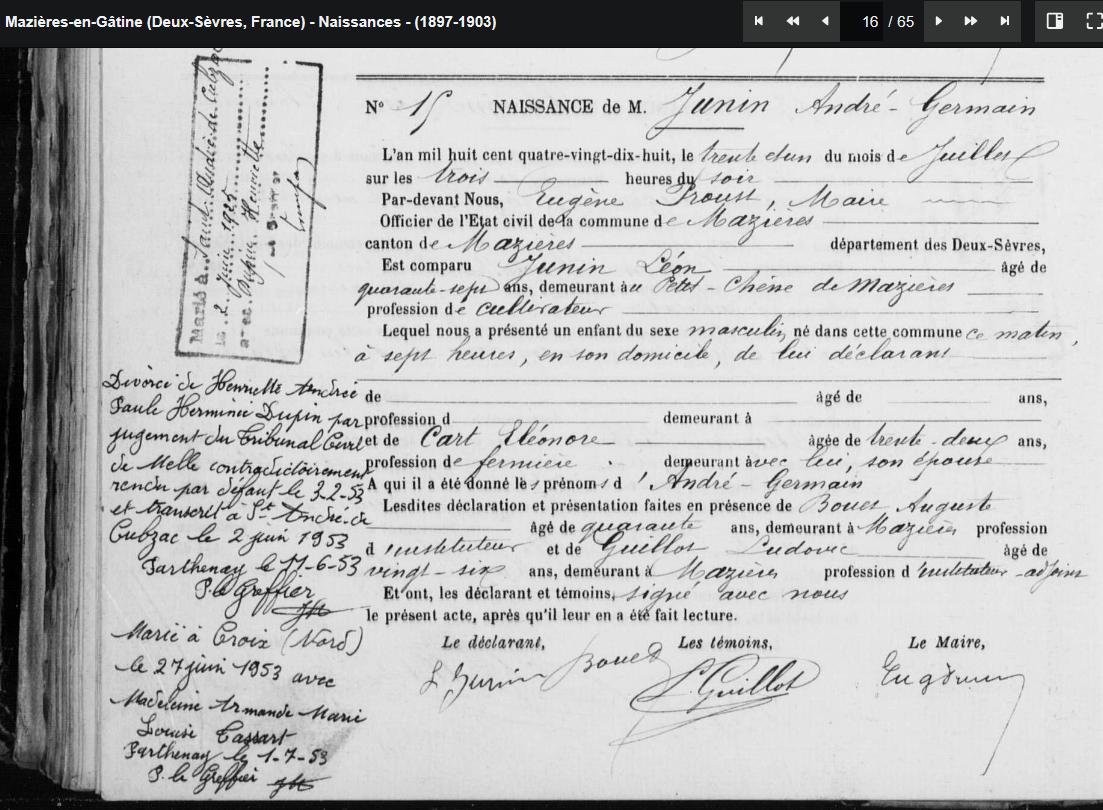 Mazières-en-Gâtine (Deux-Sèvres, France) - Naissances - (1897-1903)
16 / 65
N° 15 NAISSANCE de M. Junin André-Germain
L'an mil huit cent quatre-vingt-dix-huit, le trente et un du mois de Juillet
sur les trois heures du soir
Par-devant Nous, Eugène Proust, Maire
Officier de l'Etat civil de la commune de Mazières
canton de Mazières département des Deux-Sèvres,
Est comparu Junin Léon âgé de
quarante-sept ans, demeurant au Petit-Chêne de Mazières
profession de cultivateur
Lequel nous a présenté un enfant du sexe masculin, né dans cette commune ce matin,
à sept heures, en son domicile, de lui déclarant
de âgé de ans,
profession d demeurant à
et de Cart Eléonore âgée de trente-deux ans,
profession de fermière demeurant avec lui, son épouse
A qui il a été donné les prénoms d'André-Germain
Lesdites déclaration et présentation faites en présence de Bouet Auguste
âgé de quarante ans, demeurant à Mazières profession
d'instituteur et de Guillot Ludovic âgé de
vingt-six ans, demeurant à Mazières profession d'instituteur-adjoint
Et ont, les déclarant et témoins, signé avec nous
le présent acte, après qu'il leur en a été fait lecture.
Le déclarant, Les témoins, Le Maire,
L Junin Bouet L. Guillot
Marié à Saint André de Cubzac
le 2 juin 1925
avec Dupin Henriette
Divorcé de Henriette Andrée
Paule Herminie Dupin par
jugement du Tribunal Civil
de Melle contradictoirement
rendu par défaut le 3-2-53
et transcrit à St André de
Cubzac le 2 juin 1953
Parthenay le 11-6-53
P. le Greffier
Marié à Croix (Nord)
le 27 juin 1953 avec
Madeleine Armande Marie
Louise Cassart
Parthenay le 1-7-53
P. le Greffier